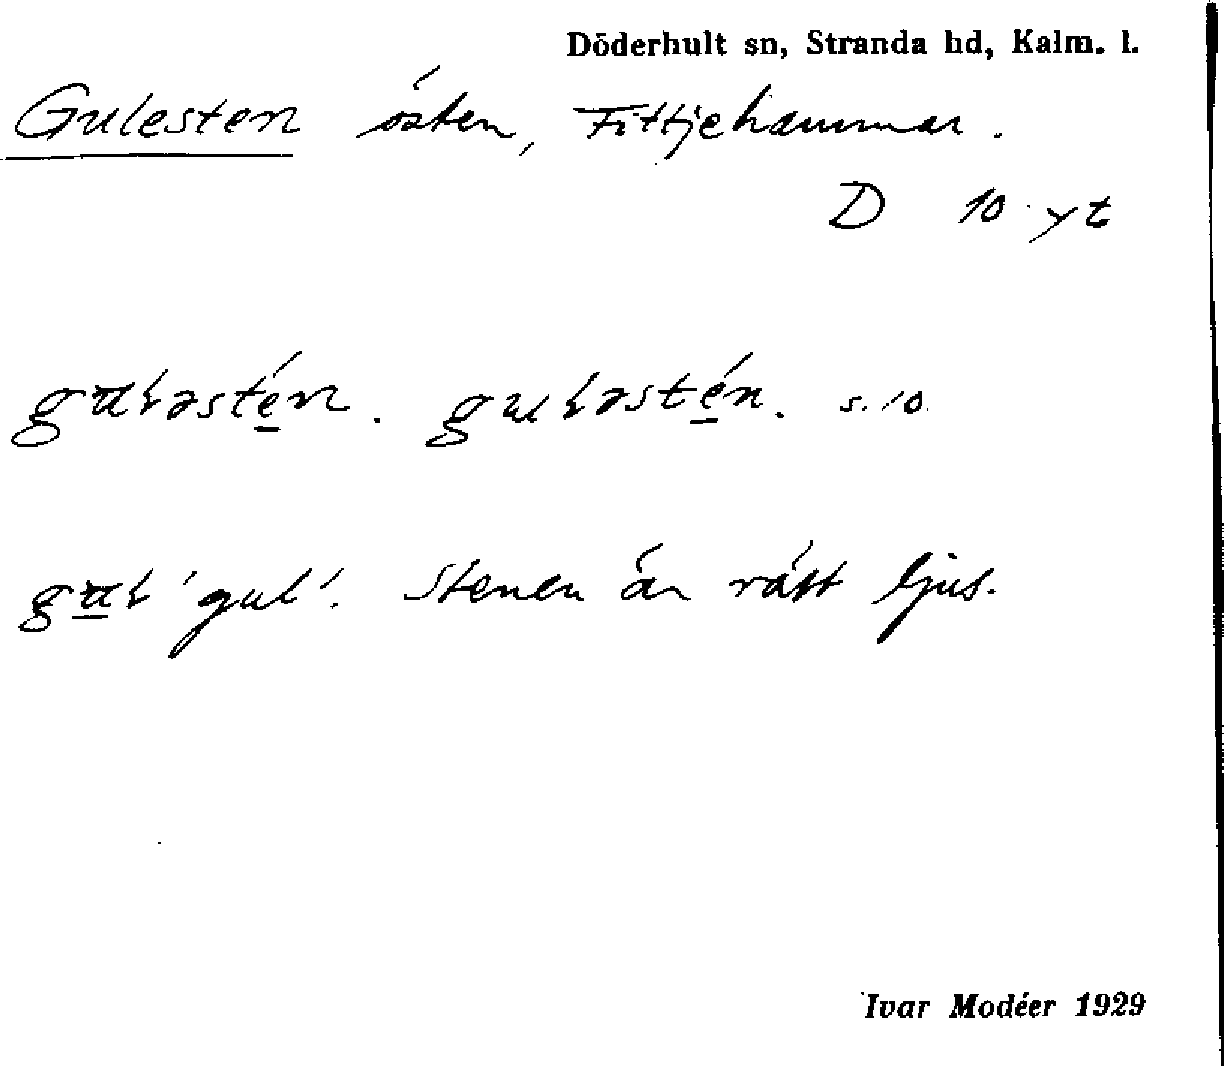 Döderhult sn, Stranda hd, Kalm. l.
Gulesten östen, Fittjehammar.
D 10 yt
gʉłəstén. gułəstén. s. 10.
gʉł 'gul'. Stenen är rätt ljus.
Ivar Modéer 1929